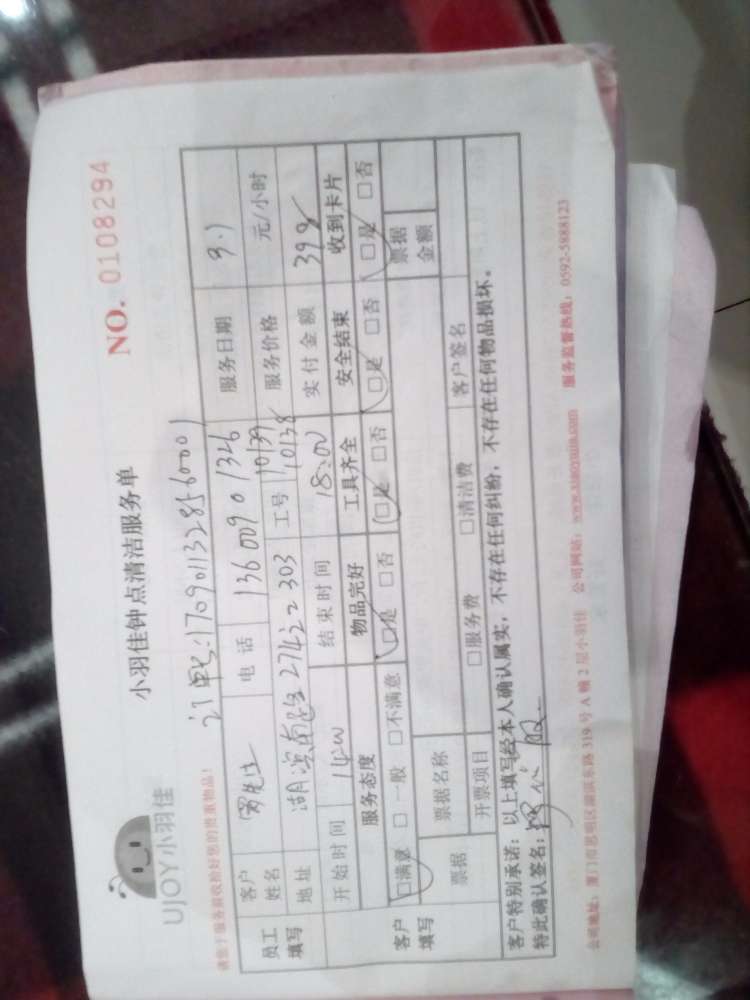 UJOY小羽佳
小羽佳钟点清洁服务单
NO. 0108294
请您于服务前收拾好您的贵重物品!
订单号:1709011328560001
员工填写 客户姓名 罗先生 电话 13600901326 服务日期 9.1
地址 湖滨南路274之2 303 工号 10139 10138 服务价格 元/小时
开始时间 14:00 结束时间 18:00 实付金额 398
客户填写 服务态度 物品完好 工具齐全 安全结束 收到卡片
□满意 □一般 □不满意 □是 □否 □是 □否 □是 □否 □是 □否
票据 票据名称 票据金额
开票项目 □服务费 □清洁费 客户签名
客户特别承诺:以上填写经本人确认属实,不存在任何纠纷,不存在任何物品损坏。
特此确认签名:
公司地址:厦门市思明区湖滨东路319号A幢2层小羽佳 公司网站:www.xiaoyujia.com 服务监督热线:0592-5888123